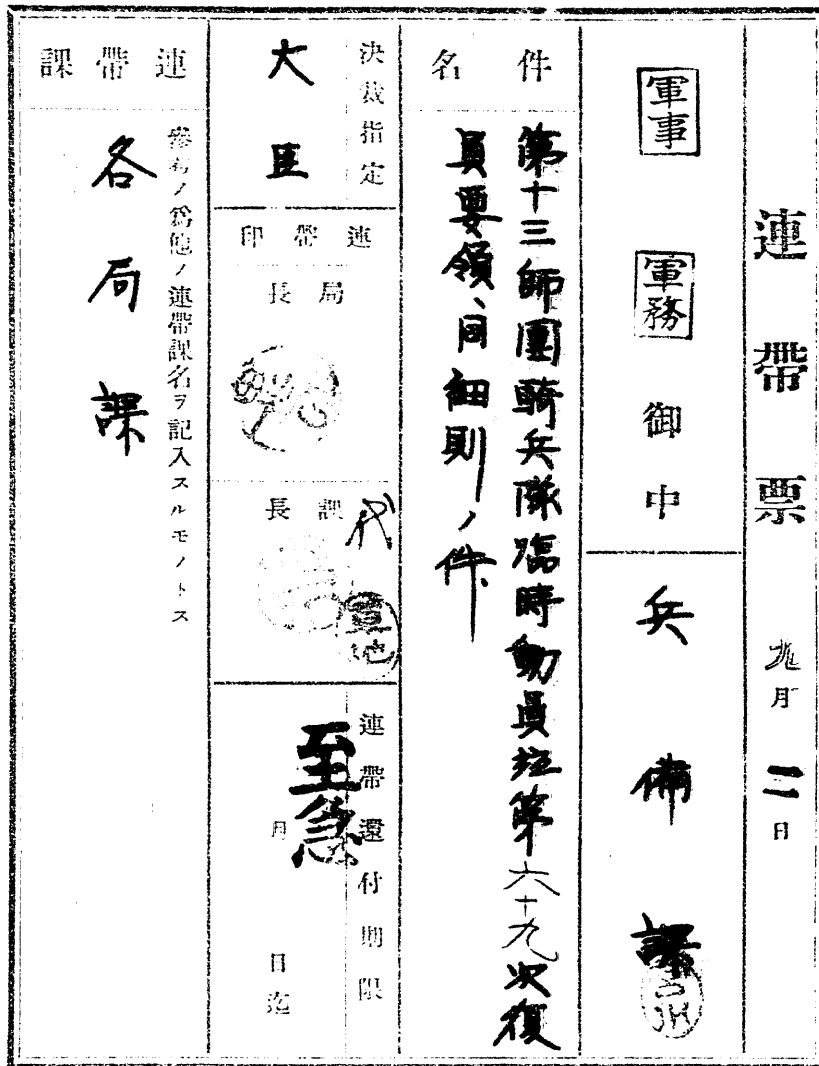 連帶票 九月二日
軍事 軍務 御中
兵備課
件名
第十三師團騎兵隊臨時動員竝第六十九次復
員要領、同細則ノ件
決裁指定
大臣
連帶印
局長
課長
代
連帶還付期限
至急
月 日迄
連帶課
參考ノ爲他ノ連帶課名ヲ記入スルモノトス
各局課